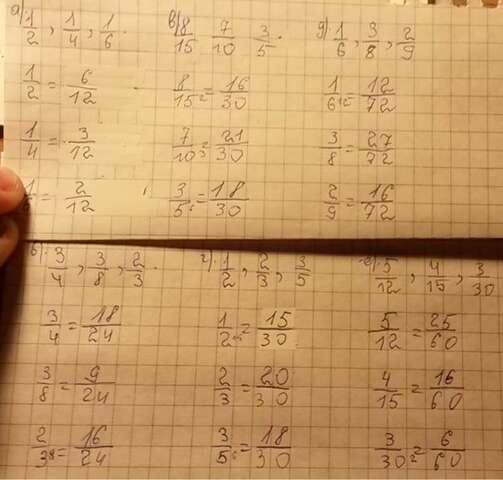 а) 1/2, 1/4, 1/6.
1/2 = 6/12
1/4 = 3/12
1/6 = 2/12
в) 8/15 7/10 3/5.
8/15 2 = 16/30
7/10 3 = 21/30
3/5 6 = 18/30
д) 1/6, 3/8, 2/9
1/6 12 = 12/72
3/8 = 27/72
2/9 = 16/72
б) 3/4, 3/8, 2/3.
3/4 = 18/24
3/8 = 9/24
2/3 8 = 16/24
г) 1/2, 2/3, 3/5
1/2 15 = 15/30
2/3 = 20/30
3/5 6 = 18/30
е) 5/12, 4/15, 3/30
5/12 = 25/60
4/15 = 16/60
3/30 2 = 6/60